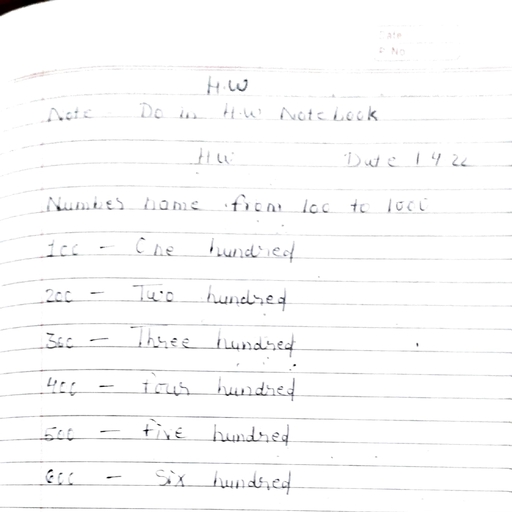 Date
P. No.
H.W
Note Do in H.W Notebook
H.W Date 1 4 22
Number name from 100 to 1000
100 - One hundred
200 - Two hundred
300 - Three hundred
400 - four hundred
500 - five hundred
600 - Six hundred